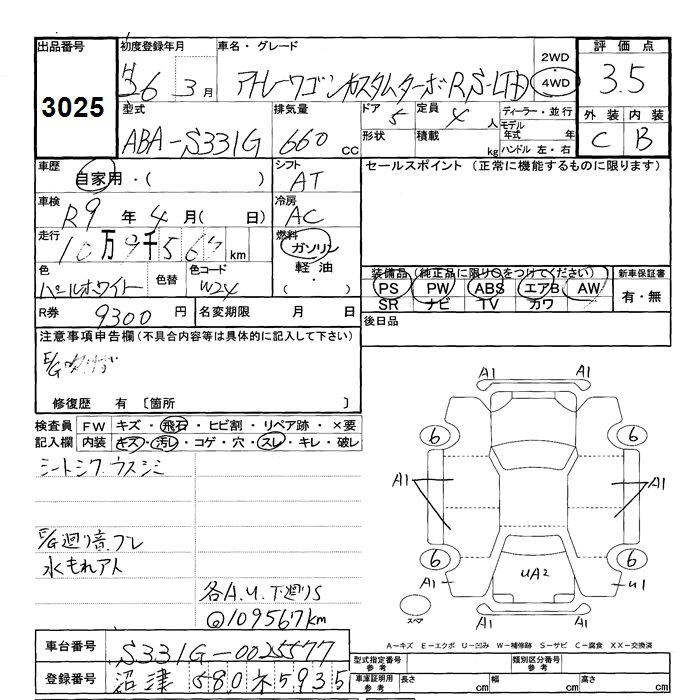 出品番号 3025
初度登録年月 H26 3月
車名・グレード アトレーワゴン カスタムターボRS-LTD
2WD
4WD
評価点 3.5
外装 C 内装 B
型式 ABA-S331G
排気量 660 cc
ドア 5 定員 4 人
形状 積載 kg
ディーラー・並行
モデル年式 年
ハンドル 左・右
車歴 自家用・( )
シフト AT
セールスポイント (正常に機能するものに限ります)
車検 R9 年 4 月( 日)
冷房 AC
走行 10万9千567 km
燃料 ガソリン
軽油
・( )
色 パールホワイト 色替 色コード W24
装備品 (純正品に限り○をつけてください) 新車保証書
PS PW ABS エアB AW 有・無
SR ナビ TV カワ
R券 9300 円 名変期限 月 日
後日品
注意事項申告欄(不具合内容等は具体的に記入して下さい)
E/G
修復歴 有 〔箇所 〕
検査員 FW キズ・飛石・ヒビ割・リペア跡・×要
記入欄 内装 キズ・汚レ・コゲ・穴・スレ・キレ・破レ
シートシワ.ウスシミ
E/G廻り音.フレ
水もれアト
各A.U.下廻りS
◎109567km
A1 A1
6 6
A1 A1
6 6
A1 UA2 U1
スペア
A-キズ E-エクボ U-凹み W-補修跡 S-サビ C-腐食 XX-交換済
車台番号 S331G-0025577
登録番号 沼津 580 ネ 5935
型式指定番号 参考 類別区分番号 参考
車庫証明用 参考 長さ cm 幅 cm 高さ cm